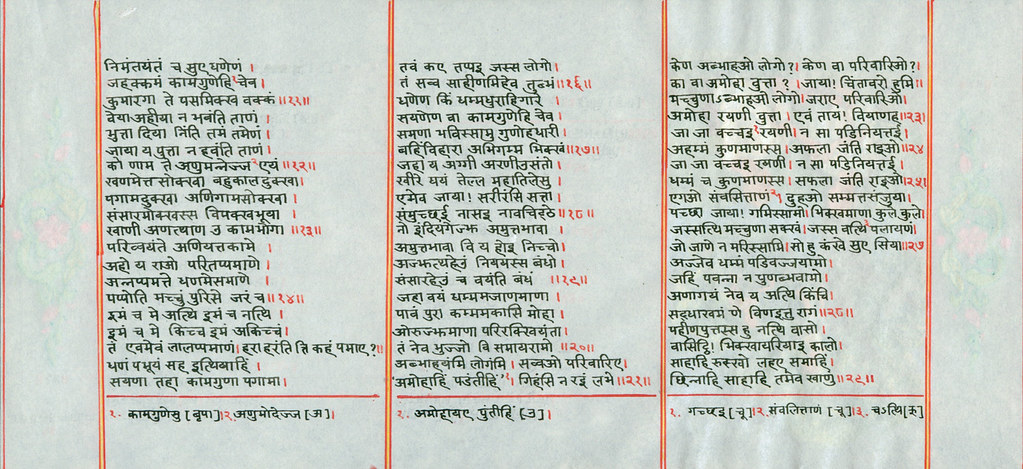 निमंतयंतं च सुए धणेणं ।
जहक्कमं कामगुणेहि१ चेव ।
कुमारगा ते पसमिक्ख वक्कं ॥११॥
वेया अहीया न भवंति ताणं ।
भुत्ता दिया निंति तमं तमेणं ।
जाया य पुत्ता न हवंति ताणं ।
को णाम ते अणुमन्नेज्ज२ एयं ॥१२॥
खणमेत्तसोक्खा बहुकालदुक्खा ।
पगामदुक्खा अणिगामसोक्खा ।
संसारमोक्खस्स विपक्खभूया ।
खाणी अणत्थाण उ कामभोगा ॥१३॥
परिव्वयंते अणियत्तकामे ।
अहो य राओ परितप्पमाणे ।
अन्नप्पमत्ते धणमेसमाणे ।
पप्पोति मच्चुं पुरिसे जरं च ॥१४॥
इमं च मे अत्थि इमं च नत्थि ।
इमं च मे किच्च इमं अकिच्चं ।
तं एवमेवं लालप्पमाणं । हरा हरंति त्ति कहं पमाए ? ॥
धणं पभूयं सह इत्थियाहिं ।
सयणा तहा कामगुणा पगामा ।
१. कामगुणेसु [बृपा] । २. अणुमोदेज्ज [अ] ।
तवं कए तप्पइ जस्स लोगो ।
तं सव्व साहीणमिहेव तुब्भं ॥१६॥
धणेण किं धम्मधुराहिगारे ।
सयणेण वा कामगुणेहि चेव ।
समणा भविस्सामु गुणोहधारी ।
बहिंविहारा अभिगम्म भिक्खं ॥१७॥
जहा य अग्गी अरणीउसंतो ।
खीरे घयं तेल्ल महातिलेसु ।
एमेव जाया ! सरीरंसि सत्ता ।
संमुच्छई नासइ नावचिट्ठे ॥१८॥
नो इंदियगेज्झ अमुत्तभावा ।
अमुत्तभावा वि य होइ निच्चो ।
अज्झत्थहेउं निययस्स बंधो ।
संसारहेउं च वयंति बंधं ॥१९॥
जहा वयं धम्ममजाणमाणा ।
पावं पुरा कम्ममकासि मोहा ।
ओरुज्झमाणा परिरक्खियंता ।
तं नेव भुज्जो वि समायरामो ॥२०॥
अब्भाहयंमि लोगंमि । सव्वओ परिवारिए ।
अमोहाहिं पडंतीहिं१ । गिहंसि न रइं लभे ॥२१॥
१. अमोहायए पुंतीहिं [उ] ।
केण अब्भाहओ लोगो ? । केण वा परिवारिओ ? ।
का वा अमोहा वुत्ता ? । जाया ! चिंतावरो हुमि ।
मच्चुणाऽब्भाहओ लोगो । जराए परिवारिओ ।
अमोहा रयणी वुत्ता । एवं ताय ! वियाणह ॥२३॥
जा जा वच्चइ१ रयणी । न सा पडिनियत्तई ।
अहम्मं कुणमाणस्स । अफला जंति राइओ ॥२४
जा जा वच्चइ रयणी । न सा पडिनियत्तई ।
धम्मं च कुणमाणस्स । सफला जंति राइओ ॥२५।
एगओ संवसित्ताणं२ । दुहओ सम्मत्तसंजुया ।
पच्छा जाया ! गमिस्सामो । भिक्खमाणा कुले कुले ।
जस्सत्थि मच्चुणा सक्खं । जस्स वत्थि३ पलायणं ।
जो जाणे न मरिस्सामि । सो हु कंखे सुए सिया ॥२७
अज्जेव धम्मं पडिवज्जयामो ।
जहिं पवन्ना न पुणब्भवामो ।
अणागयं नेव य अत्थि किंचि ।
सद्धाखमं णे विणइत्तु रागं ॥२८॥
पहीणपुत्तस्स हु नत्थि वासो ।
वासिट्ठि ! भिक्खायरियाइ कालो ।
साहाहि रुक्खो लहए समाहिं ।
छिन्नाहि साहाहि तमेव खाणुं ॥२९॥
१. गच्छइ [चू] । २. संवलित्ताणं [चू] । ३. चऽत्थि [ऊ]